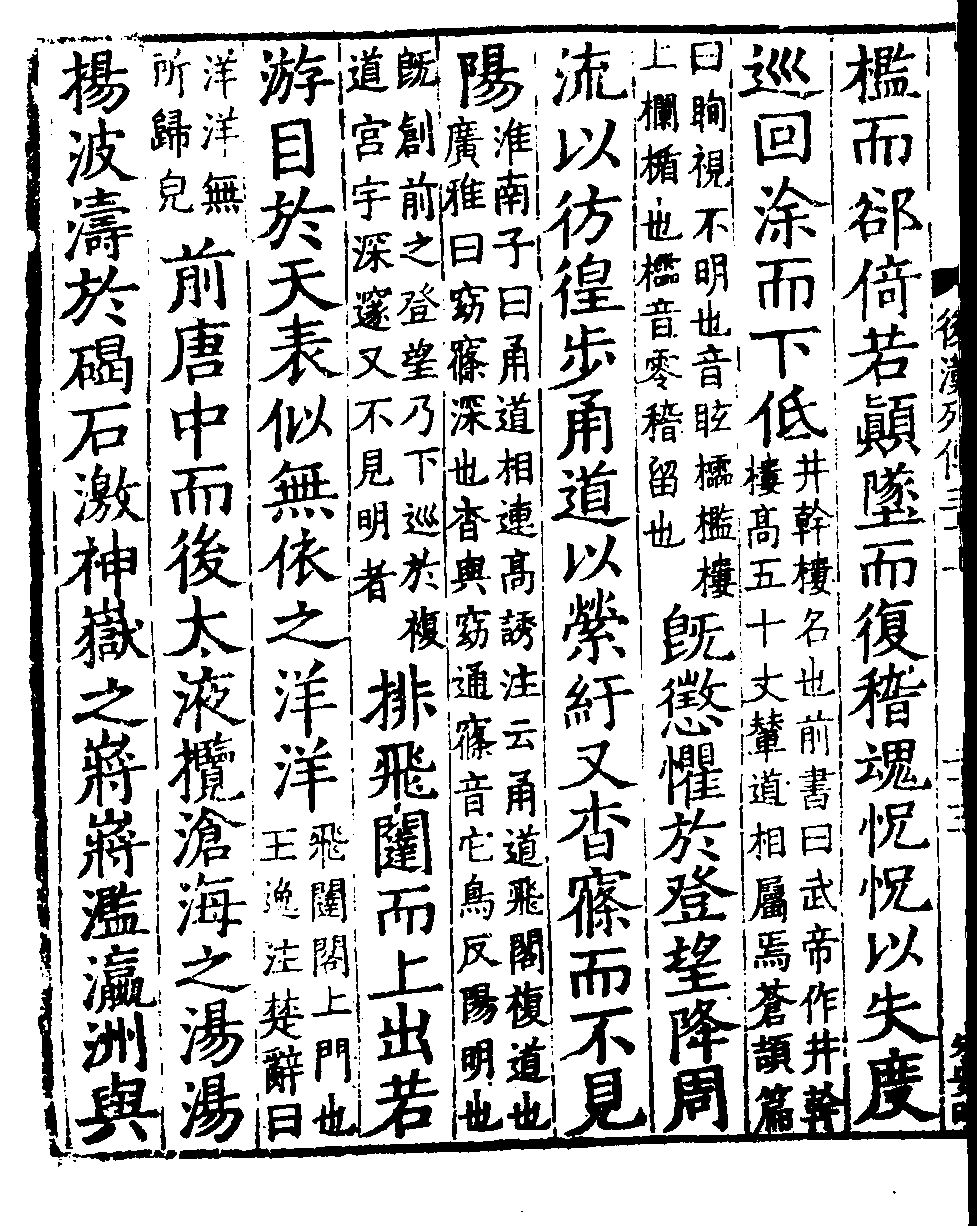 檻而郤倚若顚墜而復稽魂怳怳以失度
巡回涂而下低
井幹樓名也前書曰武帝作井幹
樓高五十丈輦道相屬焉蒼頡篇
曰眴視不明也音眩櫺檻樓
上欄楯也櫺音零稽留也
旣懲懼於登望降周
流以彷徨步甬道以縈紆又杳窱而不見
陽
淮南子曰甬道相連高誘注云甬道飛閣複道也
廣雅曰窈窱深也杳與窈通窱音它鳥反陽明也
旣創前之登望乃下巡於複
道宮宇深邃又不見明者
排飛闥而上出若
游目於天表似無依之洋洋
飛闥閣上門也
王逸注楚辭曰
洋洋無
所歸皃
前唐中而後太液攬滄海之湯湯
揚波濤於碣石激神嶽之嶈嶈濫瀛洲與